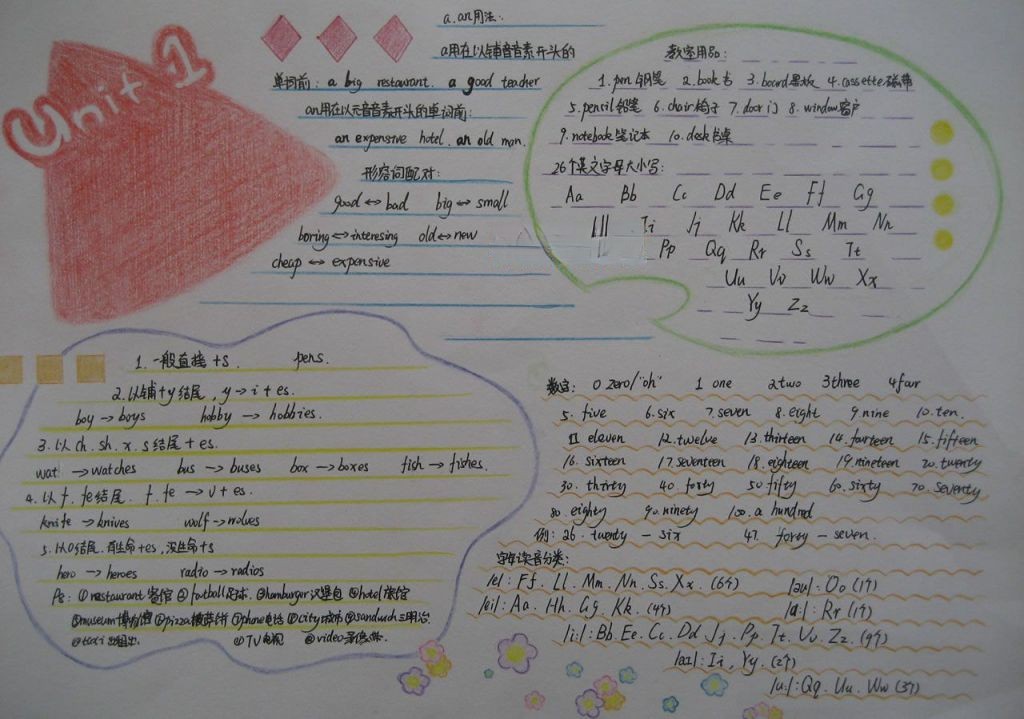 Unit 1
a. an用法:
a用在以辅音音素开头的
单词前: a big restaurant. a good teacher
an用在以元音音素开头的单词前:
an expensive hotel. an old man.
形容词配对:
good ↔ bad big ↔ small
boring ↔ interesing old ↔ new
cheap ↔ expensive
教室用品:
1. pen 钢笔 2. book 书 3. board 黑板 4. cassette 磁带
5. pencil 铅笔 6. chair 椅子 7. door 门 8. window 窗户
9. notebook 笔记本 10. desk 书桌
26个英文字母大小写:
Aa Bb Cc Dd Ee Ff Gg
Ii Jj Kk Ll Mm Nn
Pp Qq Rr Ss Tt
Uu Vv Ww Xx
Yy Zz
1. 一般直接 +s. pens.
2. 以辅+y结尾, y→i+es.
boy → boys hobby → hobbies.
3. 以ch. sh. x. s结尾 + es.
wat → watches bus → buses box → boxes fish → fishes.
4. 以f. fe结尾. f. fe → v+es.
knife → knives wolf → wolves
5. 以o结尾. 有生命+es, 没生命+s
hero → heroes radio → radios
Ps: ①restaurant 餐馆 ②football足球. ③hamburger汉堡包 ④hotel旅馆
⑤museum博物馆 ⑥pizza披萨饼 ⑦phone电话 ⑧city城市 ⑨sandwich三明治.
⑩taxi 出租车. TV电视 video录像
数字: 0 zero/"oh" 1 one 2 two 3 three 4 four
5. five 6. six 7. seven 8. eight 9. nine 10. ten.
11 eleven 12. twelve 13. thirteen 14. fourteen 15. fifteen
16. sixteen 17. seventeen 18. eighteen 19. nineteen 20. twenty
30. thirty 40. forty 50. fifty 60. sixty 70. seventy
80. eighty 90. ninety 100. a hundred
例: 26. twenty - six 47. forty - seven.
字母读音分类:
/e/: Ff. Ll. Mm. Nn. Ss. Xx. (6个) /əu/: Oo (1个)
/ei/: Aa. Hh. Gg. Kk. (4个) /a:/: Rr (1个)
/i:/: Bb. Ee. Cc. Dd Jj. Pp. Tt. Vv. Zz. (9个)
/aɪ/: Ii, Yy. (2个)
/u:/: Qq. Uu. Ww (3个)